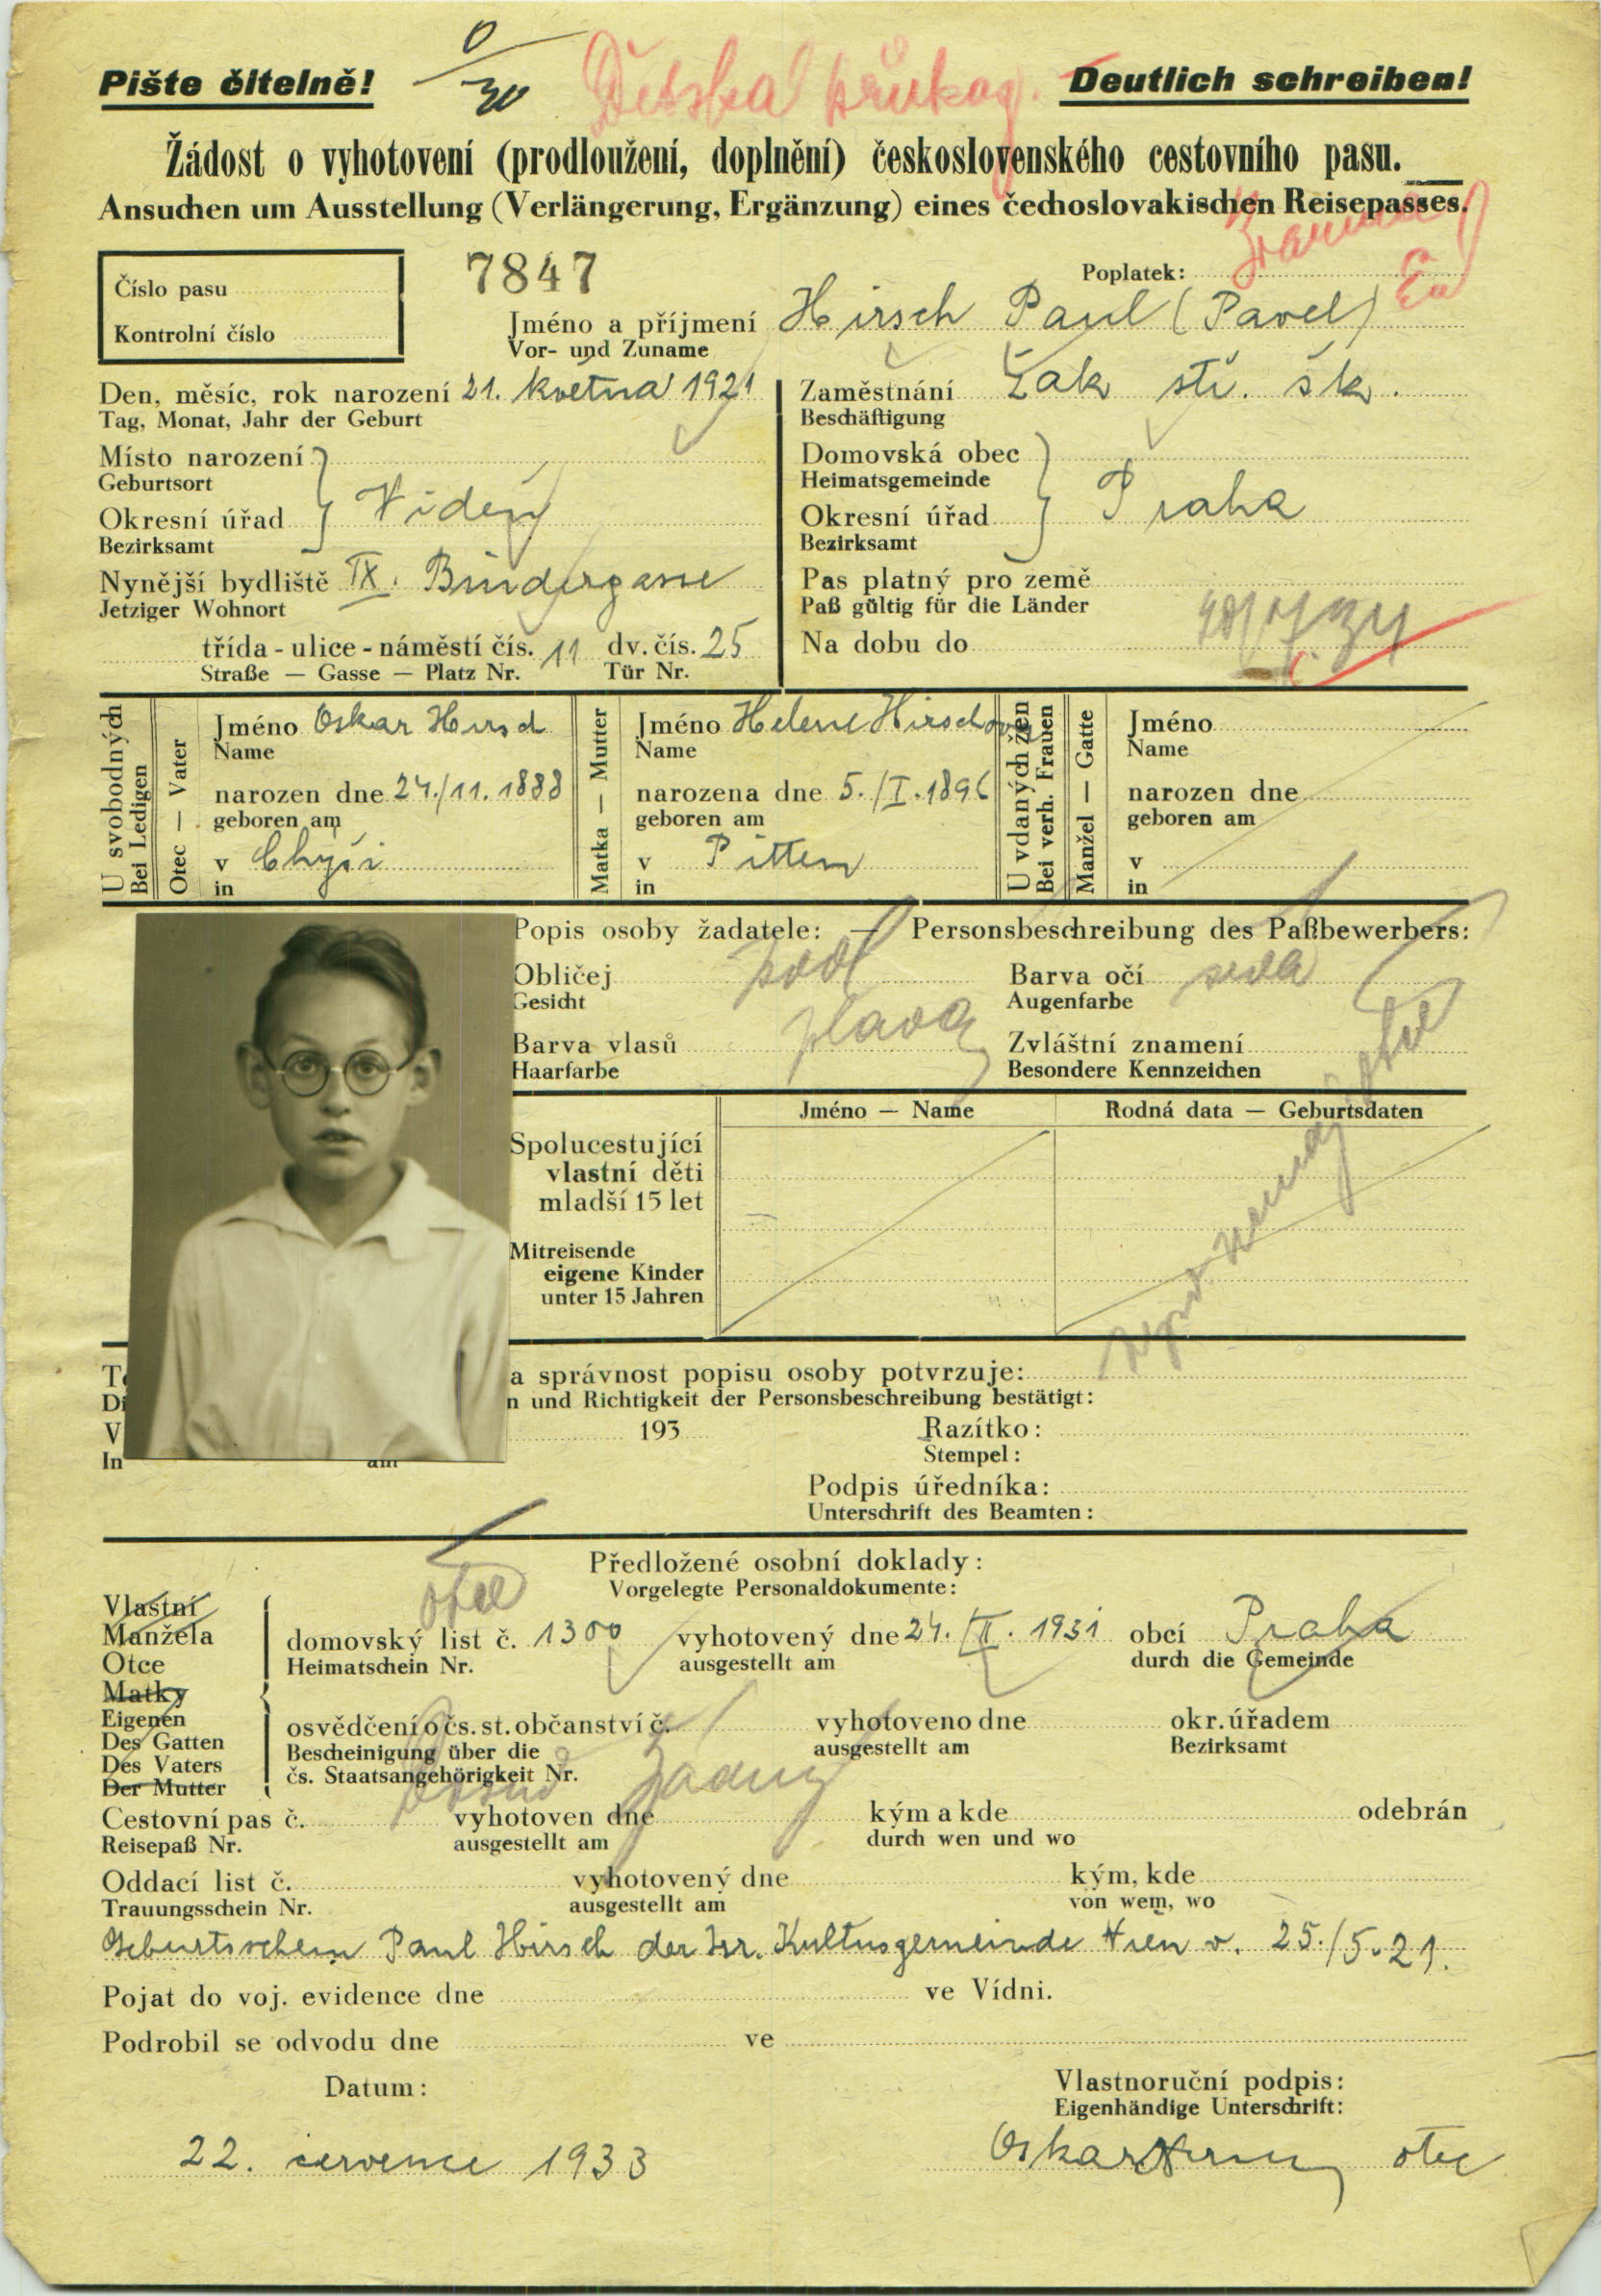 Pište čitelně!
0/30
Dětská průkaz.
Deutlich schreiben!
Žádost o vyhotovení (prodloužení, doplnění) československého cestovního pasu.
Ansuchen um Ausstellung (Verlängerung, Ergänzung) eines čechoslovakischen Reisepasses.
Číslo pasu
Kontrolní číslo
7847
Poplatek:
Jméno a příjmení Hirsch Paul (Pavel)
Vor- und Zuname
Den, měsíc, rok narození 21. května 1921
Tag, Monat, Jahr der Geburt
Zaměstnání Žák stř. šk.
Beschäftigung
Místo narození
Geburtsort
Okresní úřad Vídeň
Bezirksamt
Domovská obec
Heimatsgemeinde
Okresní úřad Praha
Bezirksamt
Nynější bydliště IX.
Jetziger Wohnort
třída - ulice - náměstí čís. 11 dv. čís. 25
Straße — Gasse — Platz Nr. Tür Nr.
Pas platný pro země
Paß gültig für die Länder
Na dobu do
U svobodných
Bei Ledigen
Otec — Vater
Jméno Oskar Hirsch
Name
narozen dne 24./11. 1888
geboren am
v Chyši
in
Matka — Mutter
Jméno Helene Hirschova
Name
narozena dne 5./I. 1896
geboren am
v Pitten
in
U vdaných žen
Bei verh. Frauen
Manžel — Gatte
Jméno
Name
narozen dne
geboren am
v
in
Popis osoby žadatele: — Personsbeschreibung des Paßbewerbers:
Obličej podl
Gesicht
Barva očí šedá
Augenfarbe
Barva vlasů plavá
Haarfarbe
Zvláštní znamení
Besondere Kennzeichen
Jméno — Name
Rodná data — Geburtsdaten
Spolucestující
vlastní děti
mladší 15 let
Mitreisende
eigene Kinder
unter 15 Jahren
a správnost popisu osoby potvrzuje:
n und Richtigkeit der Personsbeschreibung bestätigt:
V 193
In am
Razítko:
Stempel:
Podpis úředníka:
Unterschrift des Beamten:
Předložené osobní doklady:
Vorgelegte Personaldokumente:
otce
Vlastní
Manžela
Otce
Matky
Eigenen
Des Gatten
Des Vaters
Der Mutter
domovský list č. 1300 vyhotovený dne 24./II. 1931 obcí Praha
Heimatschein Nr. ausgestellt am durch die Gemeinde
osvědčení o čs. st. občanství č. vyhotoveno dne okr. úřadem
Bescheinigung über die ausgestellt am Bezirksamt
čs. Staatsangehörigkeit Nr.
Dosud žádný
Cestovní pas č. vyhotoven dne kým a kde odebrán
Reisepaß Nr. ausgestellt am durch wen und wo
Oddací list č. vyhotovený dne kým, kde
Trauungsschein Nr. ausgestellt am von wem, wo
Geburtsschein Paul Hirsch der Isr. Kultusgemeinde Wien v. 25./5. 21.
Pojat do voj. evidence dne ve Vídni.
Podrobil se odvodu dne ve
Datum:
Vlastnoruční podpis:
Eigenhändige Unterschrift:
22. července 1933
Oskar Hirsch otec